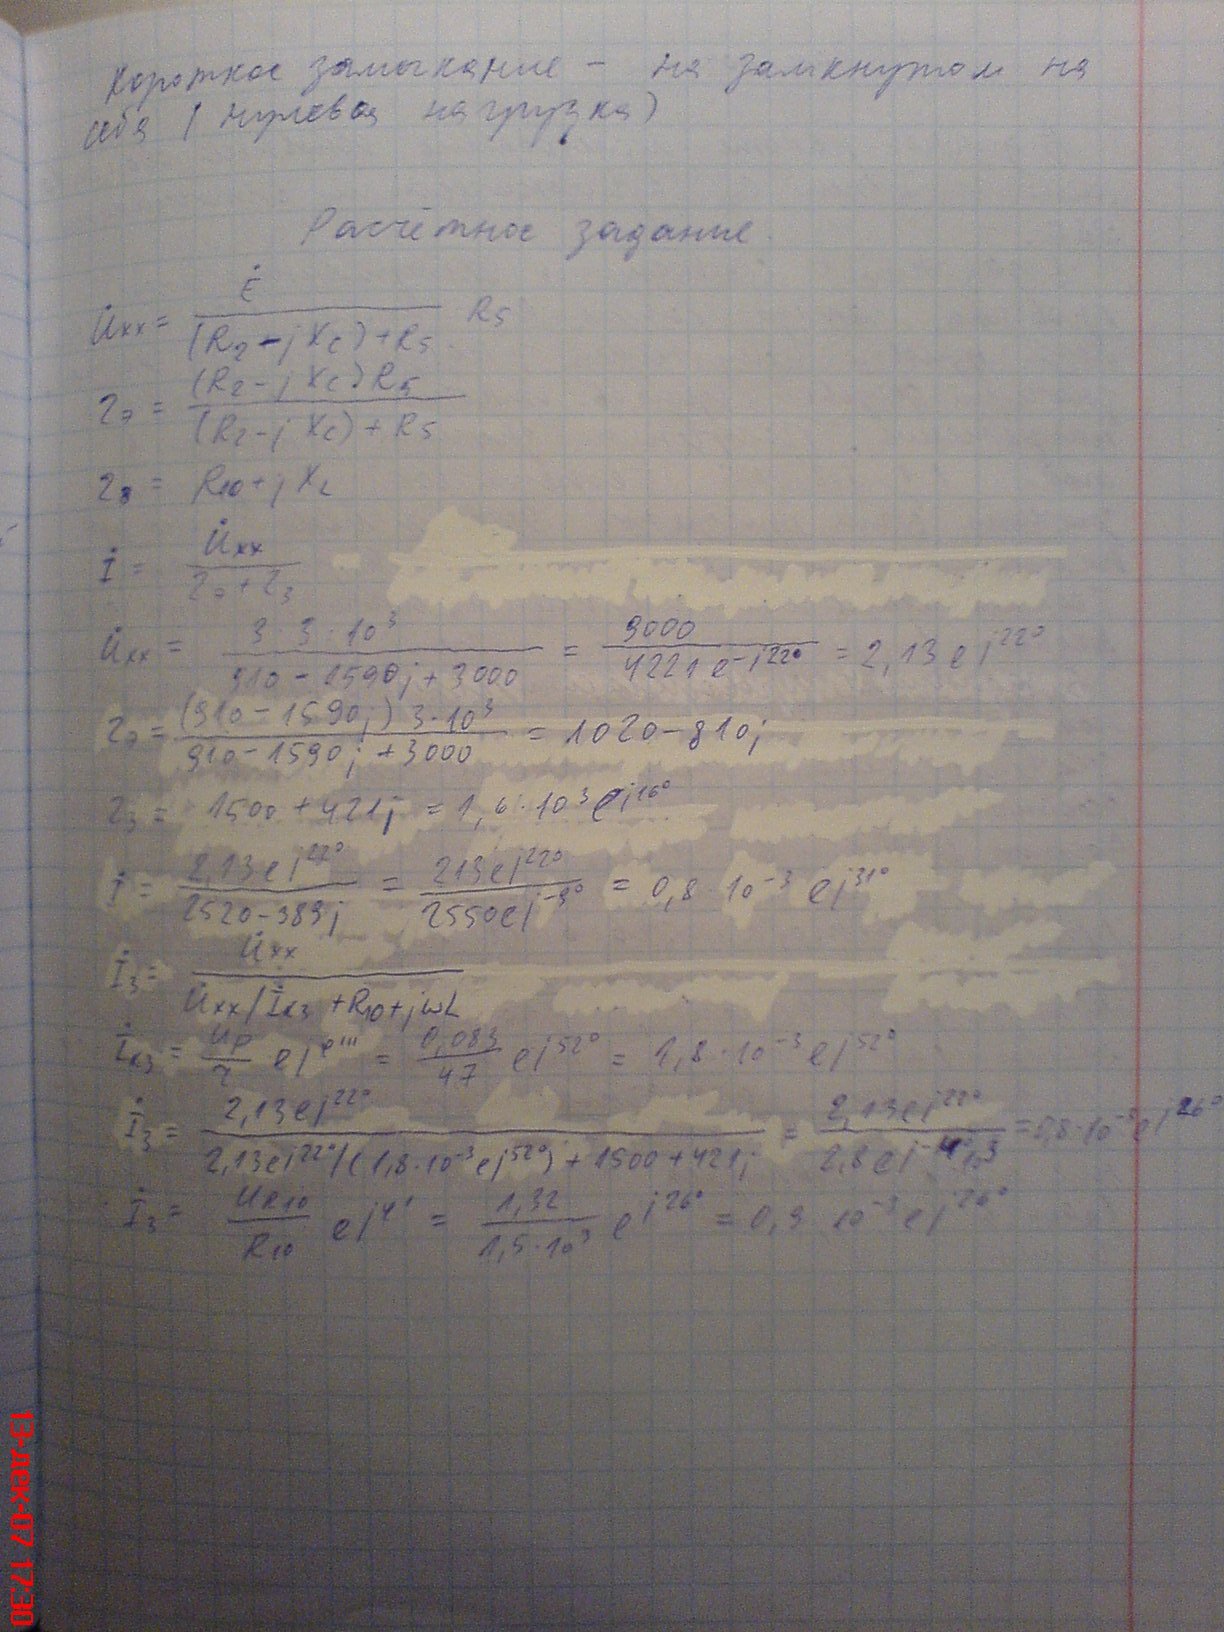 Короткое замыкание – на замкнутом на
себя (нулевая нагрузка)
Расчётное задание.
U̇xx = Ė / ((R2 - jXc) + R5) R5
Zэ = (R2 - jXc)R5 / ((R2 - jXc) + R5)
Z3 = R10 + jXL
İ = U̇xx / (Zэ + Z3)
U̇xx = 3·3·10³ / (910 - 1590j + 3000) = 9000 / (4221e^(-j22°)) = 2,13e^(j22°)
Zэ = (910 - 1590j) 3·10³ / (910 - 1590j + 3000) = 1020 - 810j
Z3 = 1500 + 421j = 1,6·10³e^(j16°)
İ = 2,13e^(j22°) / (2520 - 389j) = 213e^(j22°) / (2550e^(j-9°)) = 0,8·10⁻³ e^(j31°)
İ3 = U̇xx / (U̇xx/İкз + R10 + jωL)
İкз = Up / r e^(jφ''') = 0,083 / 47 e^(j52°) = 1,8·10⁻³ e^(j52°)
İ3 = 2,13e^(j22°) / (2,13e^(j22°)/(1,8·10⁻³e^(j52°)) + 1500 + 421j) = 2,13e^(j22°) / = 0,8·10⁻³e^(j26°)
İ3 = UR10 / R10 e^(jφ') = 1,32 / (1,5·10³) e^(j26°) = 0,9·10⁻³e^(j26°)
13-дек-07 17:30